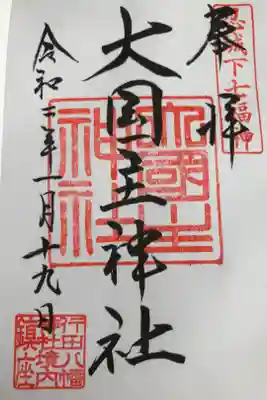 忍城下七福神
奉拝
大国主神社
大國主神社
令和二年一月十九日
行田八幡
神社境内
鎮座